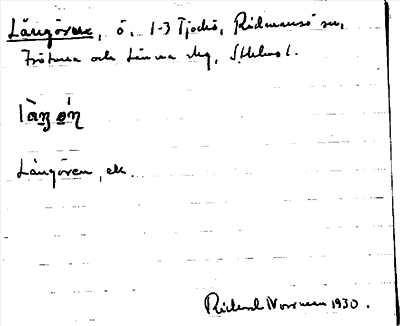 Långören, ö, 1-3 Tjockö, Rådmansö sn,
Frötuna och Länna skg, Sthlms l.
làŋö́ŋ
Långören, ek.
Rickard Norrman 1930.